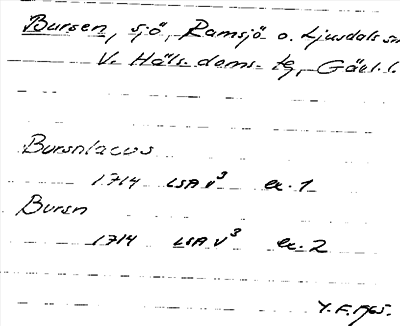 Bursen, sjö, Ramsjö o. Ljusdals sn
V. Häls. doms. tg, Gävl. l.
Bursnlacus
1714 LSA V3 ex. 1
Bursn
1714 LSA V3 ex. 2
Y. F. 1965.